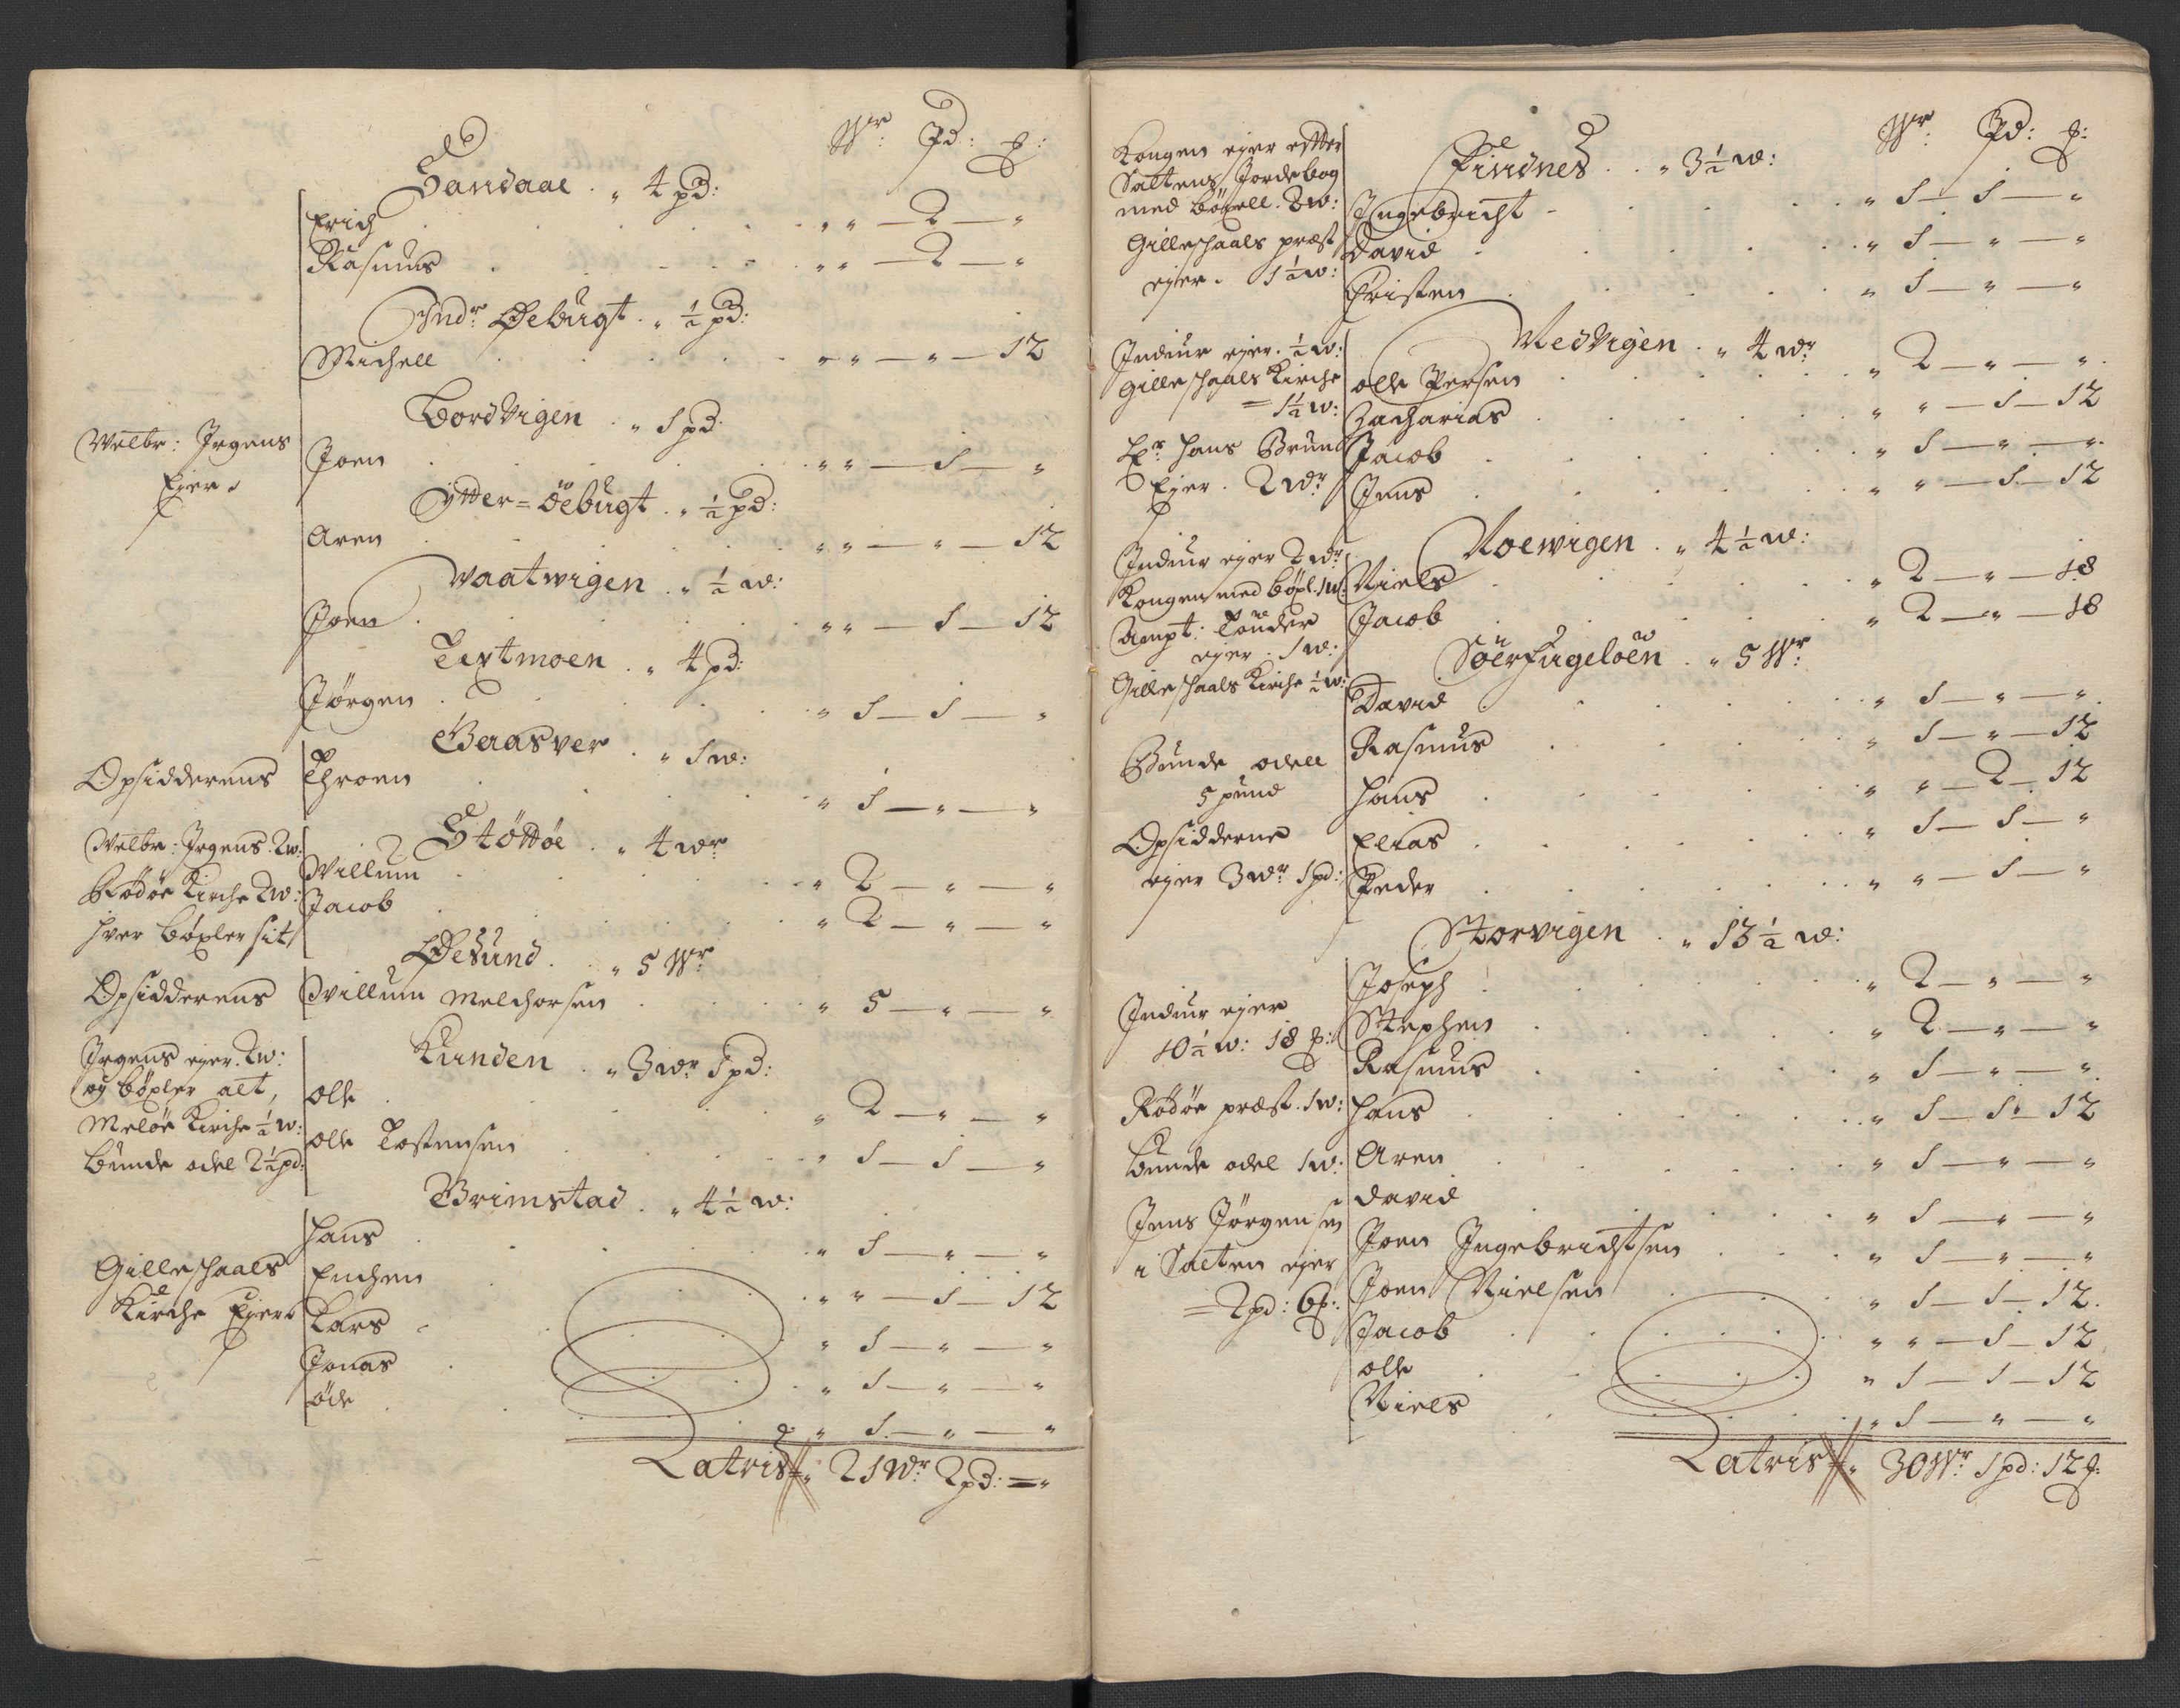 Wr: Pd: ℔:
Sandaae . „ 4 pd:
Erich . . . „ „ — 2 — „
Rasmus . . . „ „ — 2 — „
Indr Øebugt . „ ½ pd:
Michell . . . „ „ — „ — 12
Bordvigen . „ 1 pd.
Welbr: Jrgens
Ejer.
Joen . . . „ „ — 1 — „
Ytter = öebugt . „ ½ pd:
Aren . . . „ „ — „ — 12
Vaatwigen . „ ½ w:
Joen . . . „ „ — 1 — 12
Textmoen . „ 4 pd:
Jørgen . . . „ 1 — 1 — „
Baasver . „ 1 w:
Opsidderens Throen . . . „ 1 — „ — „
Støttøe . „ 4 wr
Welbr: Jrgens. 2 w:
Rødøe Kirche 2 w:
hver bøxler sit
Willum . . . „ 2 — „ — „
Jacob . . . „ 2 — „ — „
Øesund . „ 5 Wr
Opsidderens Willum Melchorsen . . . „ 5 — „ — „
Kunden . „ 3 wr 1 pd:
Jrgens ejer. 2 w:
og bøxler alt,
Meløe Kirche ½ w:
bunde odel 2½ pd:
Olle . . . „ 2 — „ — „
Olle Tostensen . . . „ 1 — 1 — „
Brimstad . „ 4½ w:
Gilleschaals
Kirche Ejer
Hans . . . „ 1 — „ — „
Enchen . . . „ „ — 1 — 12
Lars . . . „ 1 — „ — „
Jonas . . . „ 1 — „ — „
öde . . . „ 1 — „ — „
Latris „ 21 Wr 2 pd: = „
Wr: Pd: ℔:
Kongen ejer efter
Saltens Jordebog
med bøxell. 2 w:
Gilleschaals præst
ejer. 1½ w:
Findnes . . „ 3½ w:
Ingebricht . . . „ 1 — 1 — „
David . . . „ 1 — „ — „
Cristen . . . „ 1 — „ — „
Nedvigen . „ 4 wr
Indiur ejer. ½ w:
Gilleschaals Kirche
= 1½ w:
Er Hans Brun
Ejer. 2 wr
Olle Persen . . . „ 2 — „ — „
Zacharias . . . „ „ — 1 — 12
Jacob . . . „ 1 — „ — „
Jens . . . „ „ — 1 — 12
Noewigen . „ 4½ w:
Indiur ejer 2 wr
Kongen med bøxl. 1 w:
Ampt: Tønder
ejer. 1 w:
Gilleschaals Kirche ½ w:
Niels . . . „ 2 — „ — 18
Jacob . . . „ 2 — „ — 18
Söerfugelöen . „ 5 Wr
Bunde odell
5 pund
Opsidderne
ejer 3 wr 1 pd:
David . . . „ 1 — „ — „
Rasmus . . . „ 1 — „ — 12
Hans . . . „ „ — 2 — 12
Elias . . . „ 1 — 1 — „
Peder . . . „ „ — 1 — „
Storvigen . „ 13½ w:
Indiur ejer
10½ w: 18 ℔:
Rødøe præst. 1 w:
bunde odel 1 w:
Jens Jørgensen
i Salten ejer
= 2 pd: 6 ℔:
Joseph . . . „ 2 — „ — „
Stephen . . . „ 2 — „ — „
Rasmus . . . „ 1 — „ — „
Hans . . . „ 1 — 1 — 12
Aren . . . „ 1 — „ — „
David . . . „ 1 — „ — „
Joen Ingebrichtsen . . . „ 1 — „ — „
Joen Nielsen . . . „ 1 — 1 — 12.
Jacob . . . „ „ — 1 — 12
Olle . . . „ 1 — 1 — 12
Niels . . . „ 1 — „ — „
Latris „ 30 Wr 1 pd: 12 ℔: